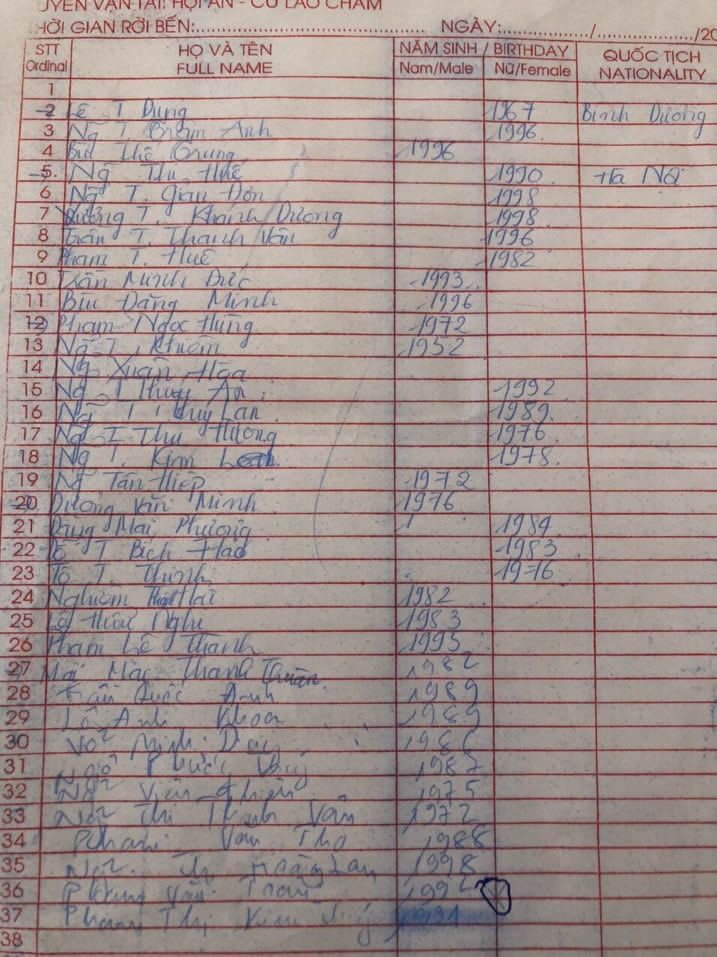 UYẾN VẬN TẢI: HỘI AN - CÙ LAO CHÀM
HỜI GIAN RỜI BẾN: NGÀY: / /20
STT Ordinal HỌ VÀ TÊN FULL NAME NĂM SINH / BIRTHDAY Nam/Male Nữ/Female QUỐC TỊCH NATIONALITY
1
2 Lê T Dung 1967 Bình Dương
3 Ng T. Trâm Anh 1996
4 Bùi Thế Trung 1996
5. Ng Thị Huế 1990 Hà Nội
6 Ng T. Giản Đơn 1998
7 Dương T. Khánh Dương 1998
8 Trần T. Thanh Vân 1996
9 Phạm T. Huê 1982
10 Trần Minh Đức 1993
11 Bùi Đăng Minh 1996
12 Phạm Ngọc Hùng 1972
13 Ng T. Khiêm 1952
14 Ng Xuân Hòa
15 Ng T Thùy An 1992
16 Ng T Thùy Lan 1989
17 Ng T Thu Hương 1976
18 Ng T. Kim 1978
19 Ng Tấn Hiệp 1972
20 Dương Văn Minh 1976
21 Đặng Mai Phương 1984
22 Tô T Bích Hảo 1983
23 Tô T. Thịnh 1976
24 Nghiêm Hải 1982
25 Lê Hữu Nghi 1983
26 Phạm Lê Thanh 1995
27 Mai Thanh 1982
28 Trần Quốc Anh 1989
29 Lê Anh Khoa 1989
30 Võ Minh Duy
31 Ngô Phước 1987
32 Ng Viên Thiện 1975
33 Ng Thị Thanh Vân 1972
34 Phạm Văn Thọ 1988
35 Ng Thị Hoàng Lan 1998
36 Phạm Văn Toàn
37 Phạm Thị Kim
38